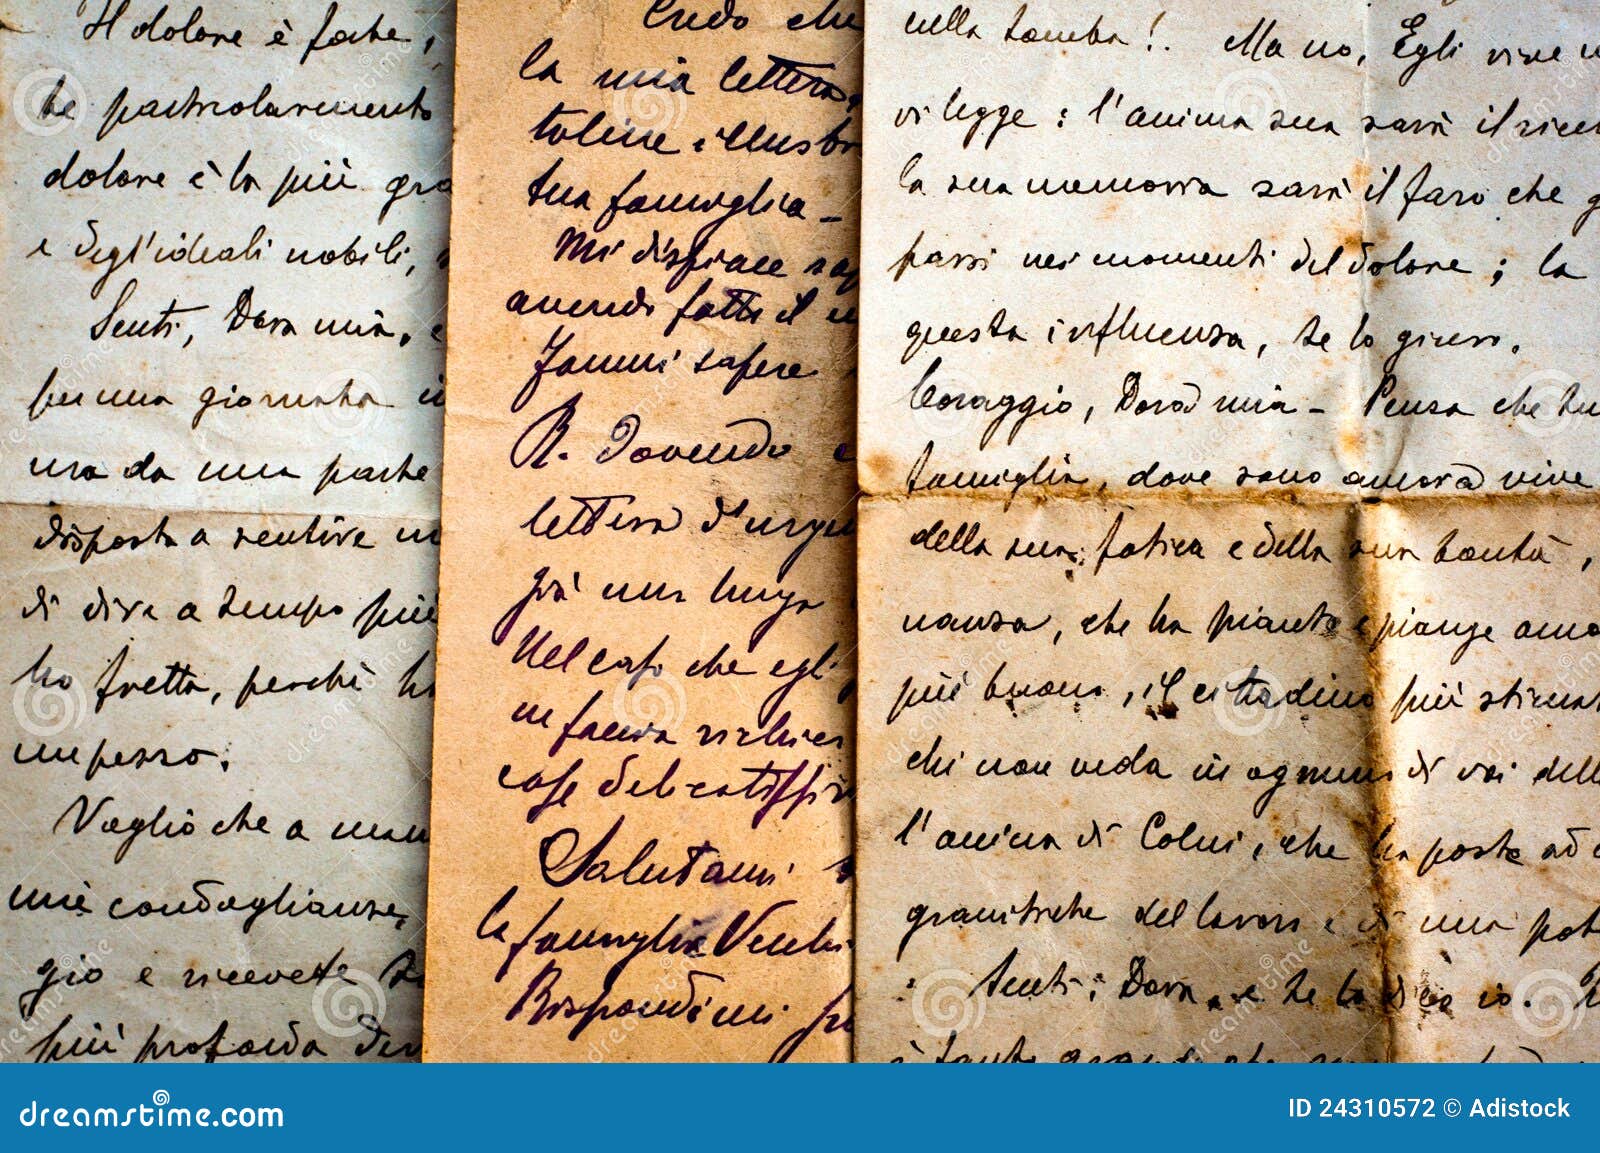 Il dolore è forte,
te particolarmente
dolore è la più gra
e degl'ideali nobili,
Senti, Dora mia,
per una giornata
ura da una parte
disposta a sentire
di dire a tempo più
ho fretta, perchè h
un pezzo.
Voglio che a
mie condoglianze,
gio e ricevete
più profonda
Credo che
la mia lettera,
toline illustr
tua famiglia -
Mi dispiace
avendo fatto il
Fammi sapere
R. Dovendo
lettera d'urge
già una lunga
Nel caso che egli
in
cose delicatissi
Salutami
la famiglia
Rispondimi
nella tomba!. Ma no, Egli vive
vi legge: l'anima sua sarà il
la sua memoria sarà il faro che g
passi nei momenti del dolore; la
questa influenza, te lo giuro.
Coraggio, Dora mia - Pensa che tu
famiglia, dove sono ancora vive
della sua fatica e della sua bontà,
nanza, che ha pianto e piange
più buono, il cittadino più stimat
chi non veda in ognuno di voi dell
l'anima di Colui, che ha posto ad
granitiche del lavoro e di una
Senti, Dora, e te lo dico io.
è tanto grande che
dreamstime.com
ID 24310572 © Adistock